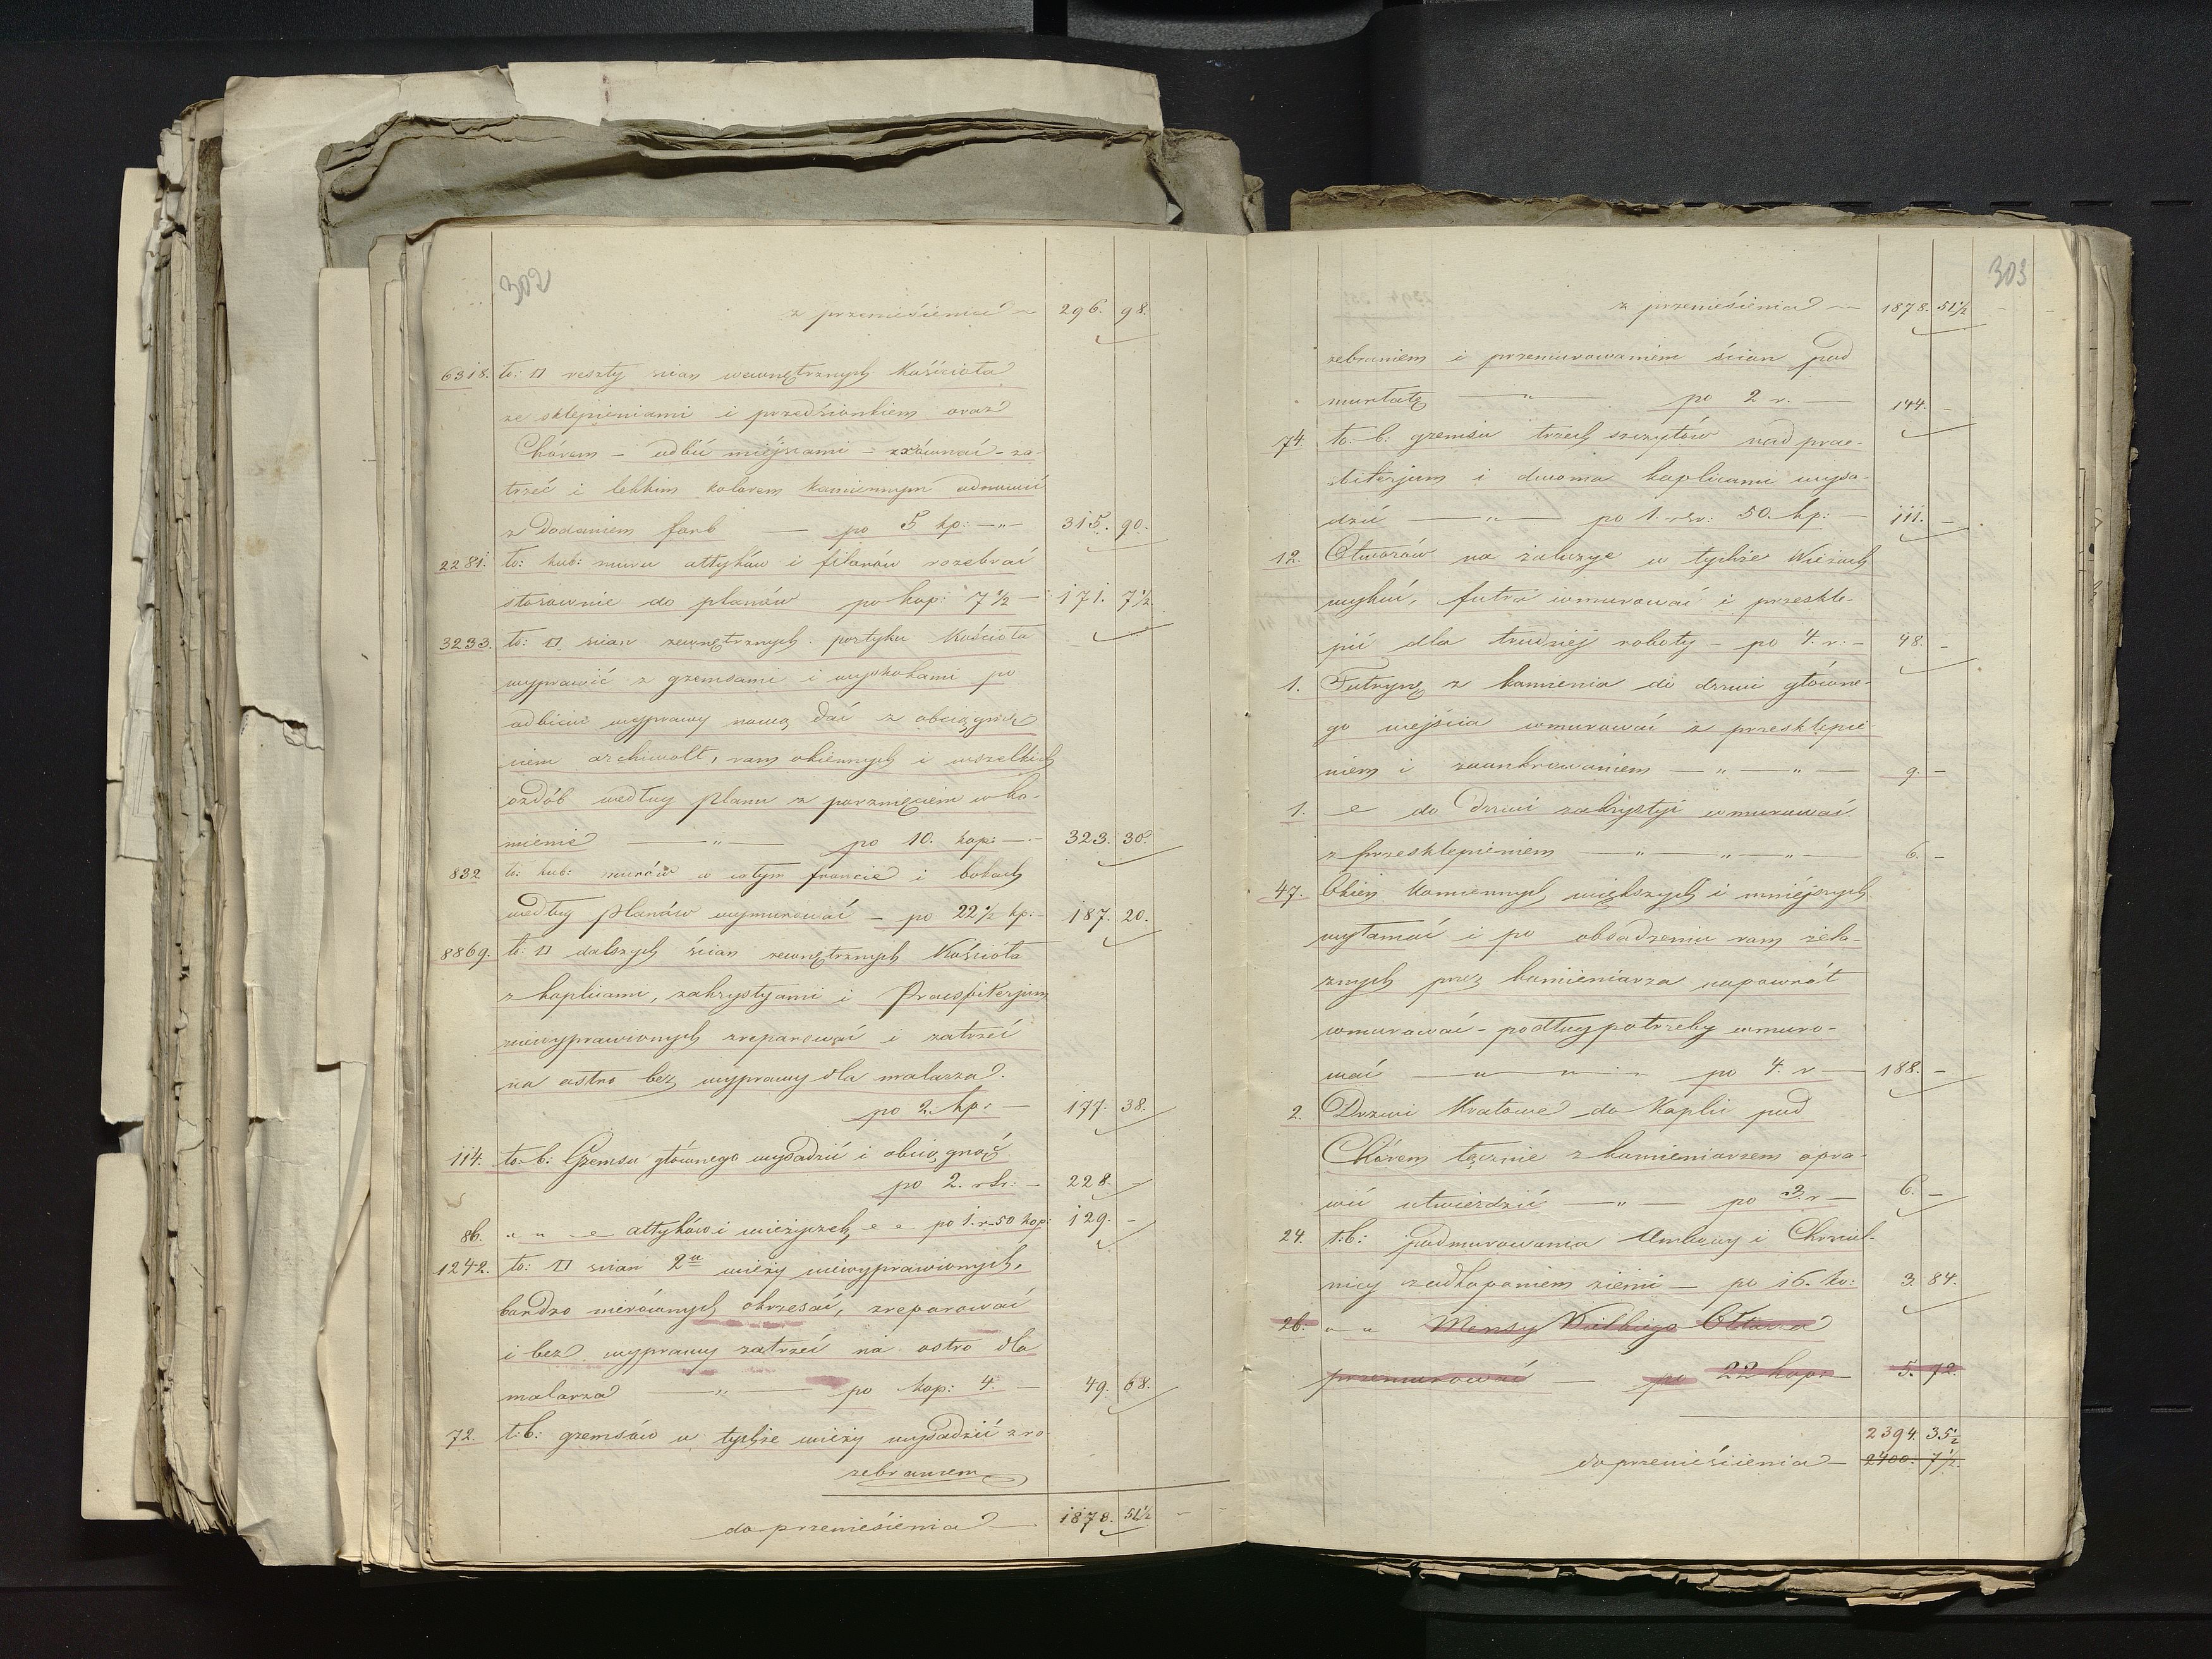 302
z przeniesienia — 296. 98.
6318. to: □ reszty ścian wewnętrznych Kościoła
ze sklepieniami i przedsionkiem oraz
Chórem – odbić miejscami – zrównać – za-
trzeć i lekkim kolorem kamiennym odnowić
z dodaniem farb — po 5 kp: — " — 315. 90.
2281. to: kub: muru attyków i filarów rozebrać
stosownie do planów po kop: 7½ — 171. 7½
3233. to: □ ścian zewnętrznych portyku Kościoła
wyprawić z gzemsami i wyskokami po
odbiciu wyprawy nową dać z obciągnie-
niem archiwolt, ram okiennych i wszelkich
ozdób według planu z porznięciem w ka-
mienie — " — po 10. kop: — 323. 30.
832. to: kub: murów w całym froncie i bokach
według planów wymurować — po 22½ kp: — 187. 20.
8869. to: □ dalszych ścian zewnętrznych Kościoła
z kaplicami, zakrystyami i Praesbiterjum
niewyprawionych zreparować i zatrzeć
na ostro bez wyprawy dla malarza.
po 2. kp: — 177. 38.
114. to: b: Gzemsu głównego wysadzić i obciągnąć
po 2. rsr: — 228. —
86. " " attyków i wieżyczek po 1. r. 50 kop: 129. —
1242. to: □ ścian 2ch wieży niewyprawionych,
bardzo nierównych okrzesać, zreparować
i bez wyprawy zatrzeć na ostro dla
malarza — " — po kop: 4. 49. 68.
72. t: b: gzemsów u tychże wieży wysadzić z ro-
zebraniem
do przeniesienia — 1878. 51½
303
z przeniesienia — 1878. 51½
zebraniem i przemurowaniem ścian pod
murłatę — " — po 2 r. — 144. —
74. to. b: gzemsu trzech szczytów nad prae-
biterjum i dwoma kaplicami wysa-
dzić — " — po 1. rsr: 50. kp: — 111. —
12. Otworów na żaluzye w tychże Wieżach
wykuć, futra wmurować i przeskle-
pić dla trudniej roboty — po 4. r: — 48. —
1. Futrynę z kamienia do drzwi główne-
go wejścia wmurować z przesklepie-
niem i zaankrowaniem — " — " — 9. —
1. do drzwi zakrystyi wmurować
z przesklepieniem — " — " — " — 6. —
47. Okien kamiennych większych i mniejszych
wyłamać i po obsadzeniu ram żela-
znych przez kamieniarza napowrót
wmurować – podług potrzeby wmuro-
wać — " — " — po 4. r — 188. —
2. Drzwi Kratowe do Kaplic pod
Chórem łącznie z kamieniarzem opra-
wić utwierdzić — " — po 3. r — 6. —
24. t: b: podmurowania Ambony i Chrzciel-
nicy z odkopaniem ziemi — po 16. ko: 3. 84.
26. " " Mensy Wielkiego Ołtarza
przemurować — po 22 kop: — 5. 72.
2394. 35½
do przeniesienia — 2400. 7½